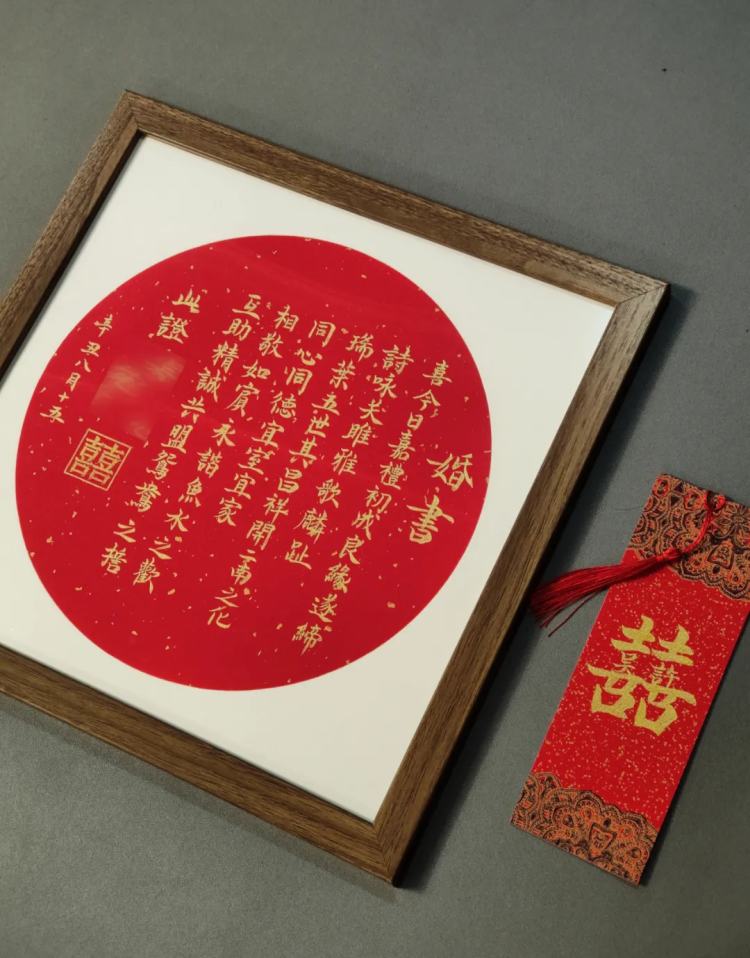 婚書
喜今日嘉禮初成良緣遂締
詩咏关雎雅歌麟趾
瑞葉五世其昌祥開二南之化
同心同德宜室宜家
相敬如賓永諧魚水之歡
互助精誠共盟鴛鴦之誓
此證
辛丑八月十五
囍
囍
吴 許